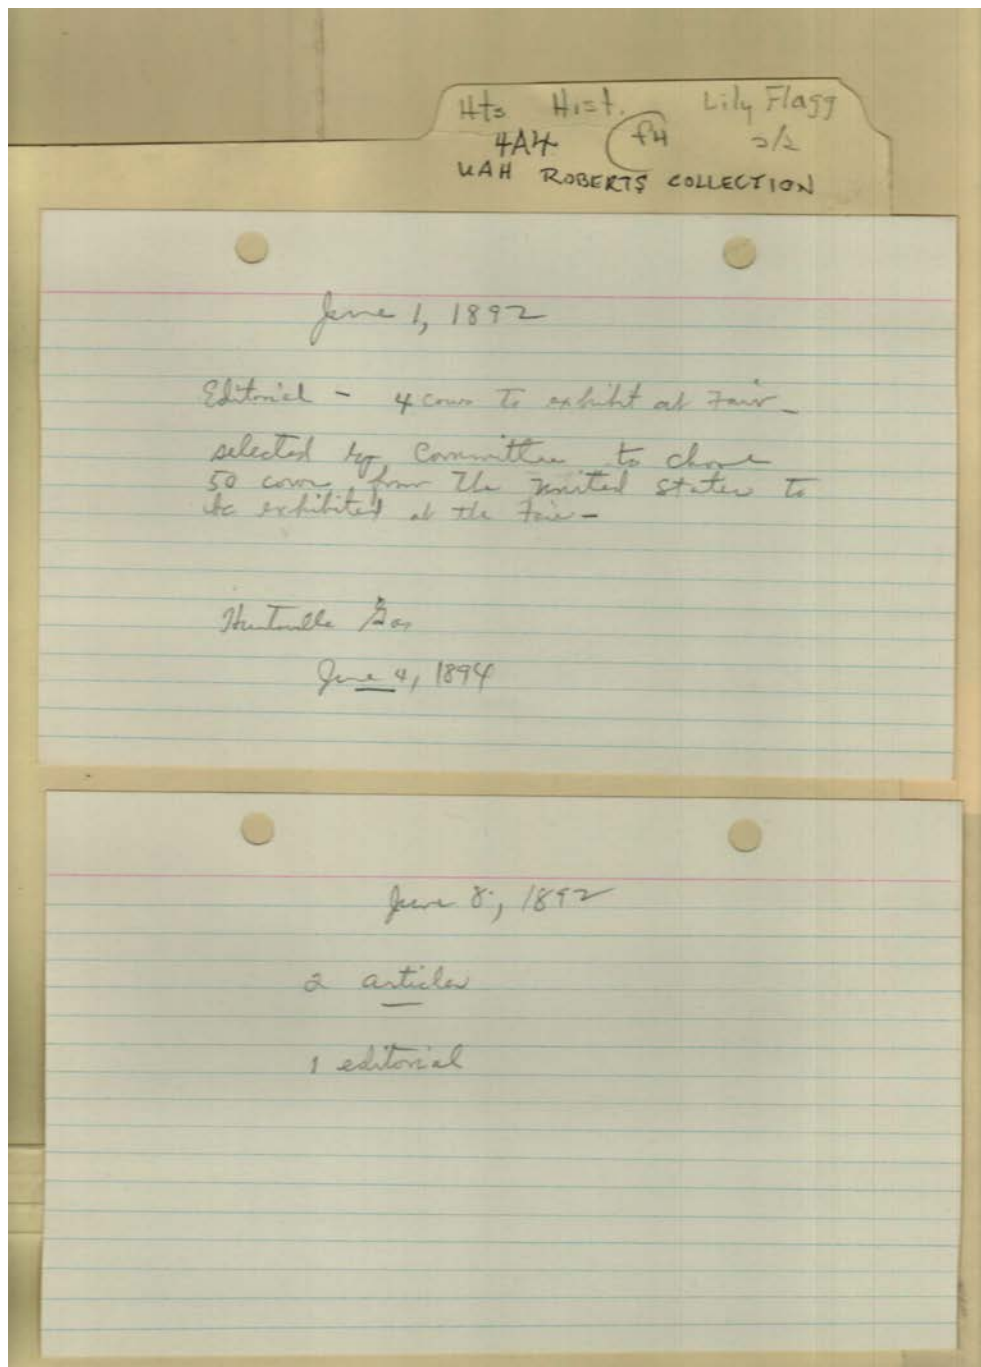 Hts Hist. Lily Flagg
4A4 fH 2/2
UAH ROBERTS COLLECTION
June 1, 1892
Editorial - 4 cows to exhibit at Fair -
selected by Committee to choose
50 cows from the United States to
be exhibited at the Fair -
Huntsville Gaz
June 4, 1894
June 8, 1892
2 articles
1 editorial